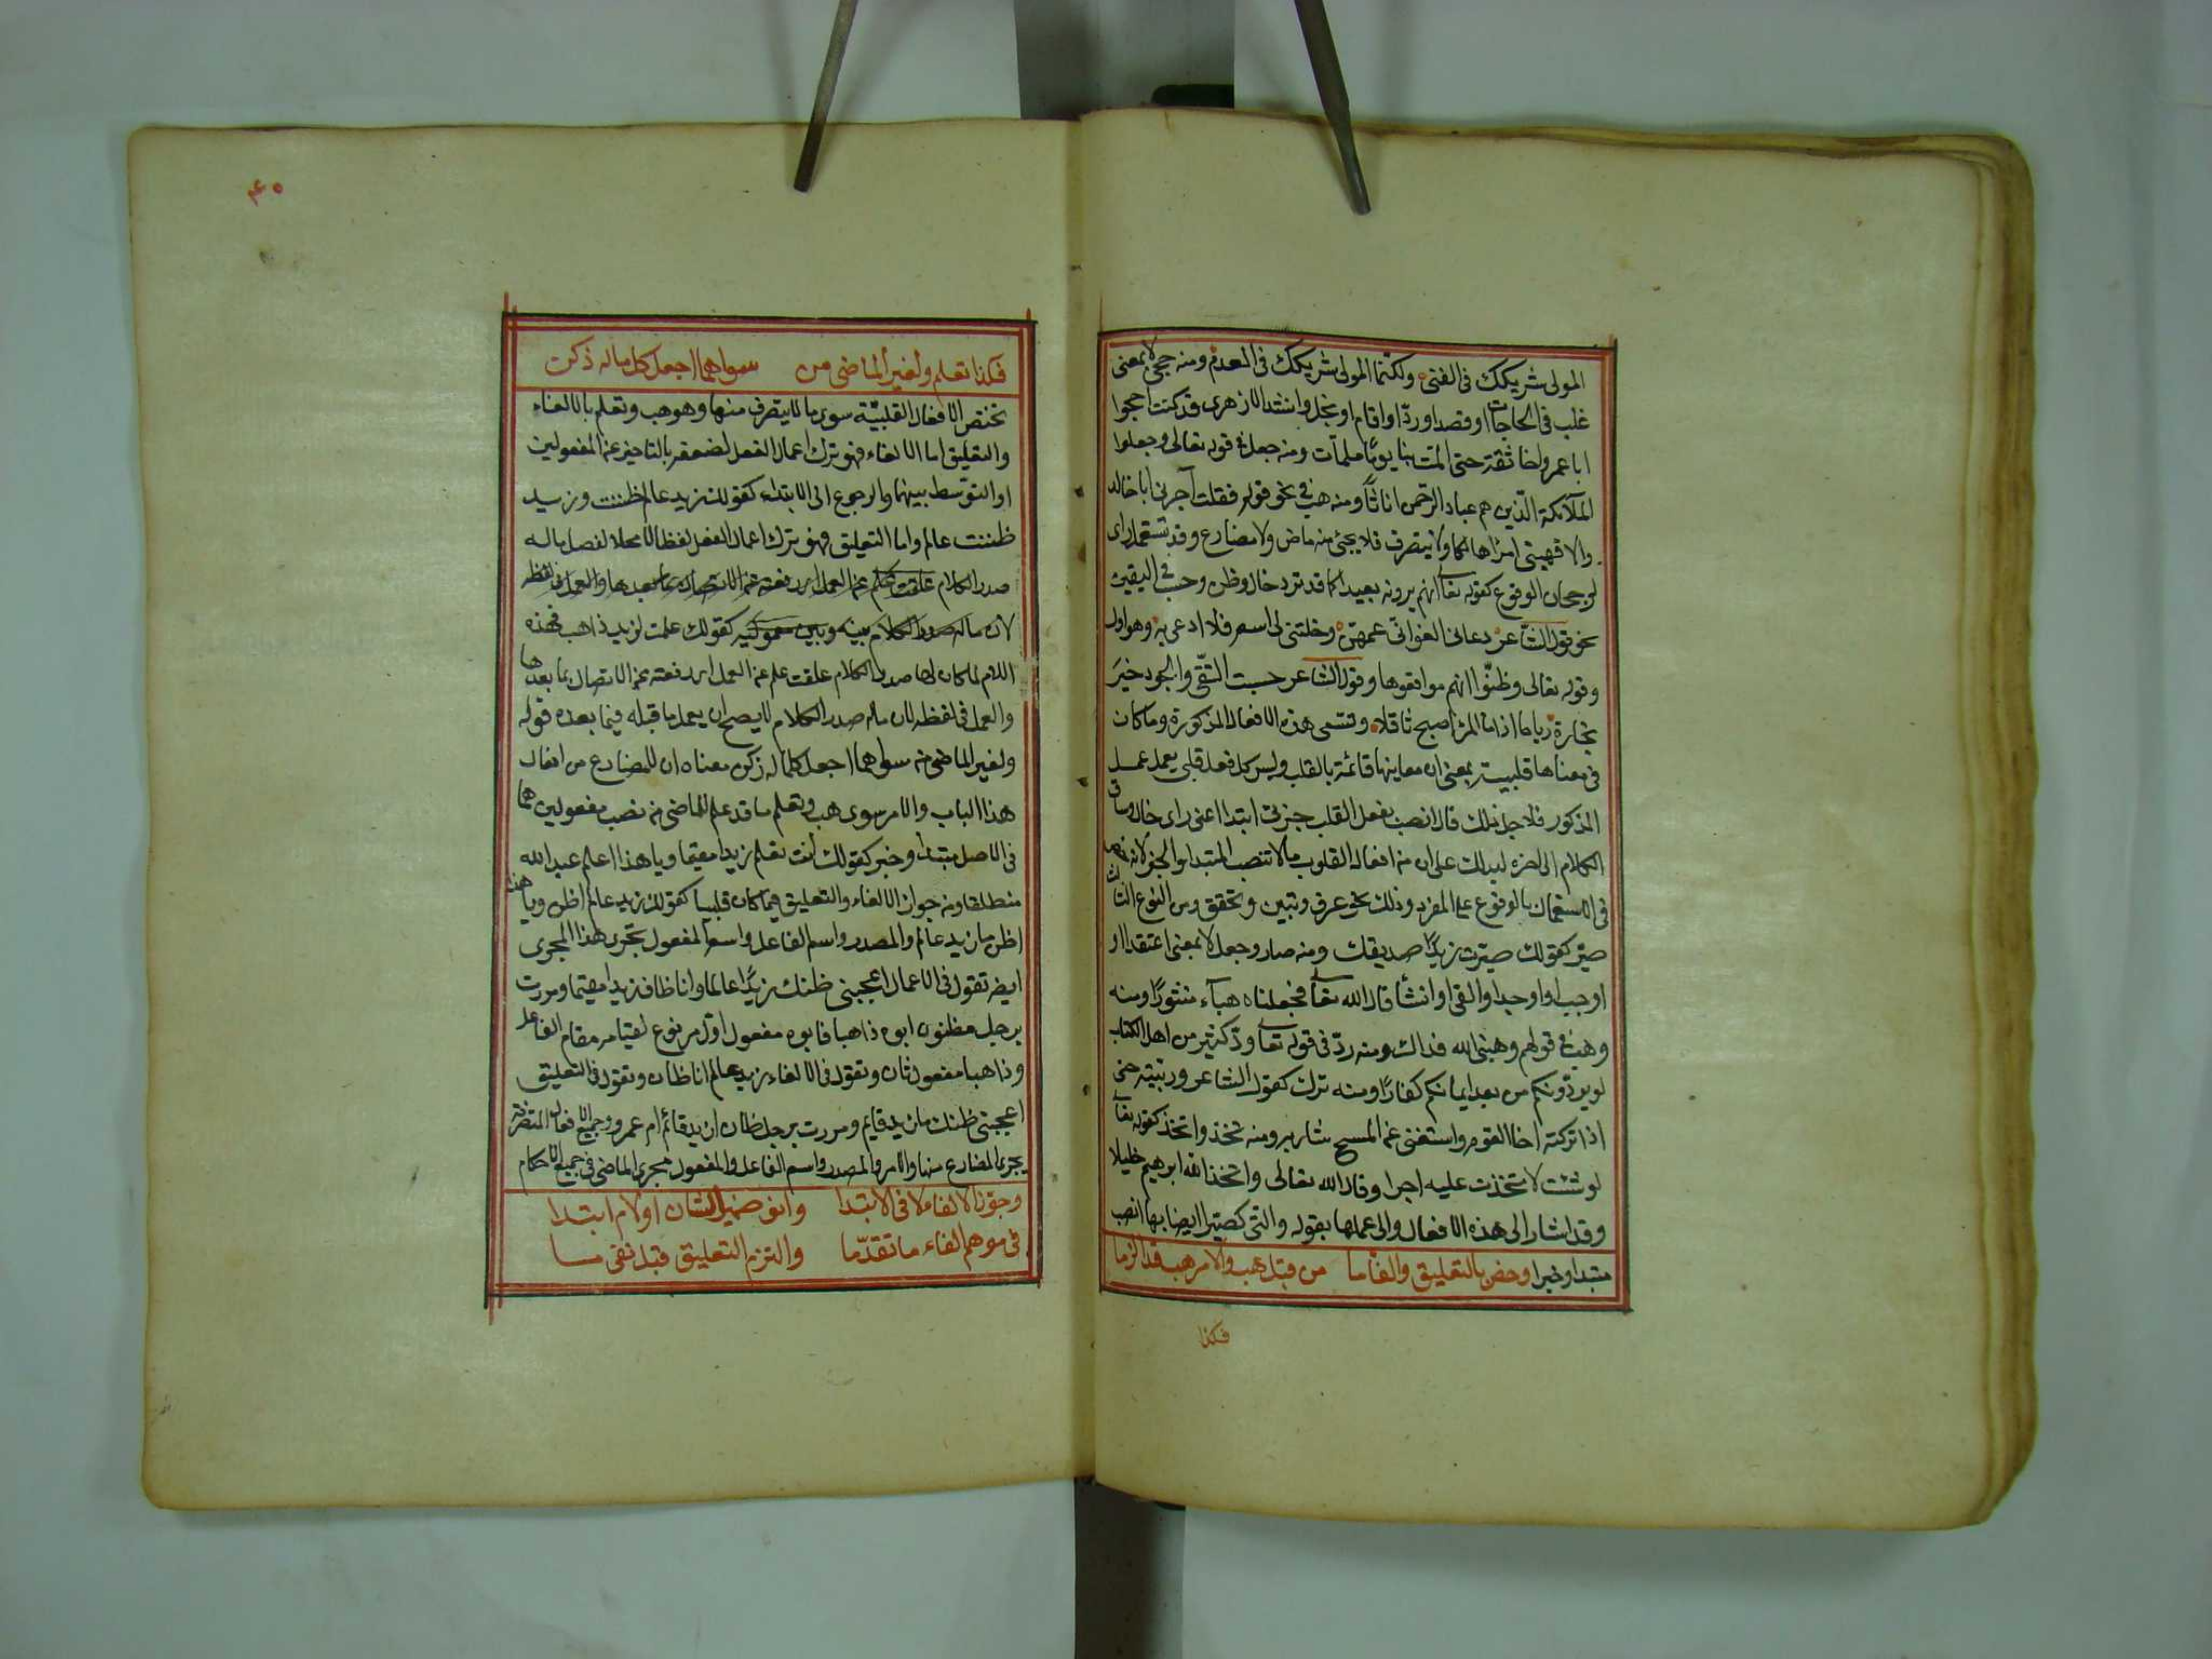 المولى شريكك في الغنى ولكنما المولى شريكك في العدم ومنه حجى لا بمعنى
غلب في الحاجات او قصد او رد او اقام او بخل وانشد الازهرى قد كنت احجوا
ابا عمرو اخا ثقة حتى المت بنا يوما ملمات ومنه جعل في قوله تعالى وجعلوا
الملآئكة الذين هم عباد الرحمن اناثا ومنه هب في نحو قوله فقلت آجرني ابا خالد
والا فهبنى امرأ هالكا ولا يتصرف فلا يجئ منه ماض ولا مضارع وقد تستعمل راى
لرجحان الوقوع كقوله تعا انهم يرونه بعيدا كما قد ترد خال وظن وحسب في اليقين
نحو قول الشاعر دعانى الغوانى عمهن وخلتنى لى اسم فلا ادعى به وهو اول
وقوله تعالى وظنوا انهم مواقعوها وقول الشاعر حسبت التقى والجود خير
تجارة رباحا اذا ما المرؤ اصبح ثاقلا وتسمى هذه الافعال المذكورة وما كان
في معناها قلبية بمعنى ان معاينها قائمة بالقلب وليس كل فعل قلبى يعمل عمل
المذكور فلاجل ذلك قال انصب بفعل القلب جزئى ابتدا اعنى راى خال وساق
الكلام الى اخره ليدلك على ان من افعال القلوب ما لا تنصب المبتدا والخبر لانه
في الاستعمال بالوقوع على المفرد وذلك نحو عرف وتبين وتحقق ومن النوع الثا
صير كقولك صيرت زيدا صديقك ومنه صار وجعل لا بمعنى اعتقد او
اوجب او اوجد او القى او انشأ قال الله تعا فجعلناه هبآء منثورا ومنه
وهب في قولهم وهبنى الله فداك ومنه رد في قوله تعا ود كثير من اهل الكتاب
لو يردونكم من بعد ايمانكم كفارا ومنه ترك كقول الشاعر وربيته حتى
اذا تركته اخا القوم واستغنى عن المسح شاربه ومنه تخذ واتخذ كقوله تعا
لو شئت لاتخذت عليه اجرا وقال الله تعالى واتخذ الله ابرهيم خليلا
وقد اشار الى هذه الافعال والى عملها بقوله والتى كصيرا ايضا بها انصب
مبتدا وخبرا وخص بالتعليق والغا ما من قبل هب والامر هب قد الزما
فكذا
٤٥
فكذا تعلم ولغير الماضى من سواهما اجعل كل ما له ذكن
تختص الافعال القلبية سوى ما لا يتصرف منها وهو هب وتعلم بالالغاء
والتعليق اما الالغاء فهو ترك اعمال الفعل لضعفه بالتاخير عن المفعولين
او التوسط بينهما والرجوع الى الابتداء كقولك زيد عالم ظننت وزيد
ظننت عالم واما التعليق فهو ترك اعمال الفعل لفظا لا محلا لفصل ماله
صدر الكلام علقت علم عن العمل اى دفعته عن الاتصال بما بعدها والعمل في لفظه
لان ماله صدر الكلام بينه وبين معموليه كقولك علمت لزيد ذاهب فهذه
اللام لما كان لها صدر الكلام علقت علم عن العمل اى دفعته عن الاتصال بما بعدها
والعمل في لفظه لان ماله صدر الكلام لا يصح ان يعمل ما قبله فيما بعده قوله
ولغير الماضى من سواهما اجعل كلما له زكن معناه ان للمضارع من افعال
هذا الباب والامر سوى هب وتعلم ما قد علم للماضى من نصب مفعولين هما
في الاصل مبتدأ وخبر كقولك أنت تعلم زيدا مقيما ويا هذا اعلم عبد الله
منطلقا ومن جواز الالغاء والتعليق فيما كان قلبيا كقولك زيد عالم اظن ويا هذا
اظن ما زيد عالم والمصدر واسم الفاعل واسم المفعول تجرى هذا المجرى
ايضا تقول في الاعمال اعجبنى ظنك زيدا عالما وانا ظان زيدا مقيما ومررت
برجل مظنون ابوه ذاهبا فابوه مفعول اول مرفوع لقيامه مقام الفاعل
وذاهبا مفعول ثان وتقول في الالغاء زيد عالم انا ظان وتقول في التعليق
اعجبنى ظنك ما زيد قايم ومررت برجل ظان ازيد قائم ام عمرو وجميع الافعال المتصرفة
يجرى المضارع منها والامر والمصدر واسم الفاعل والمفعول مجرى الماضى في جميع الاحكام
وجوز الالغاء لا في الابتدا وانو ضمير الشان او لام ابتدا
في موهم الغاء ما تقدما والتزم التعليق قبل نفى ما